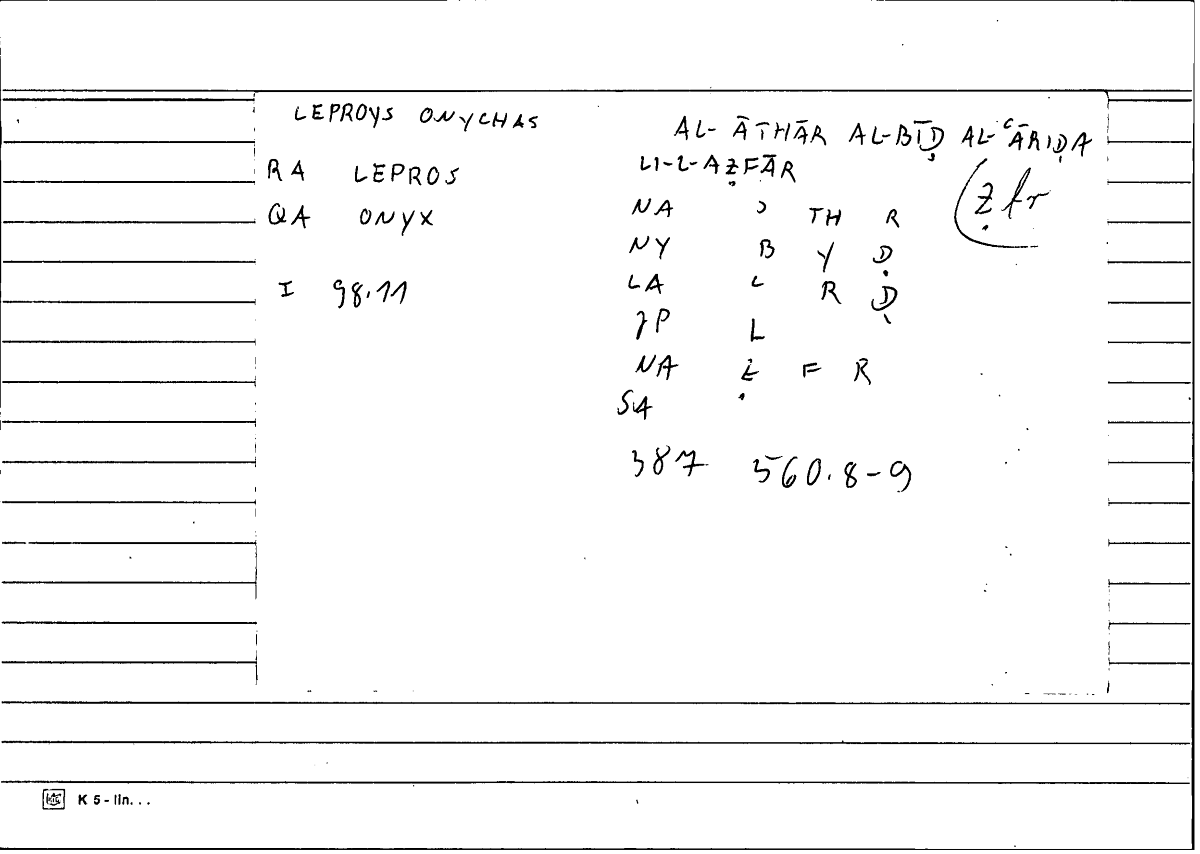 LEPROYS ONYCHAS
RA LEPROS
QA ONYX
I 98.11
AL-ĀTHĀR AL-BĪḌ AL-ʿĀRIḌA
LI-L-AẒFĀR
NA ʾ TH R
NY B Y Ḍ
LA ʿ R Ḍ
JP L
NA Ẓ F R
SA
387 560.8-9
ẓfr
K 5 - lin...